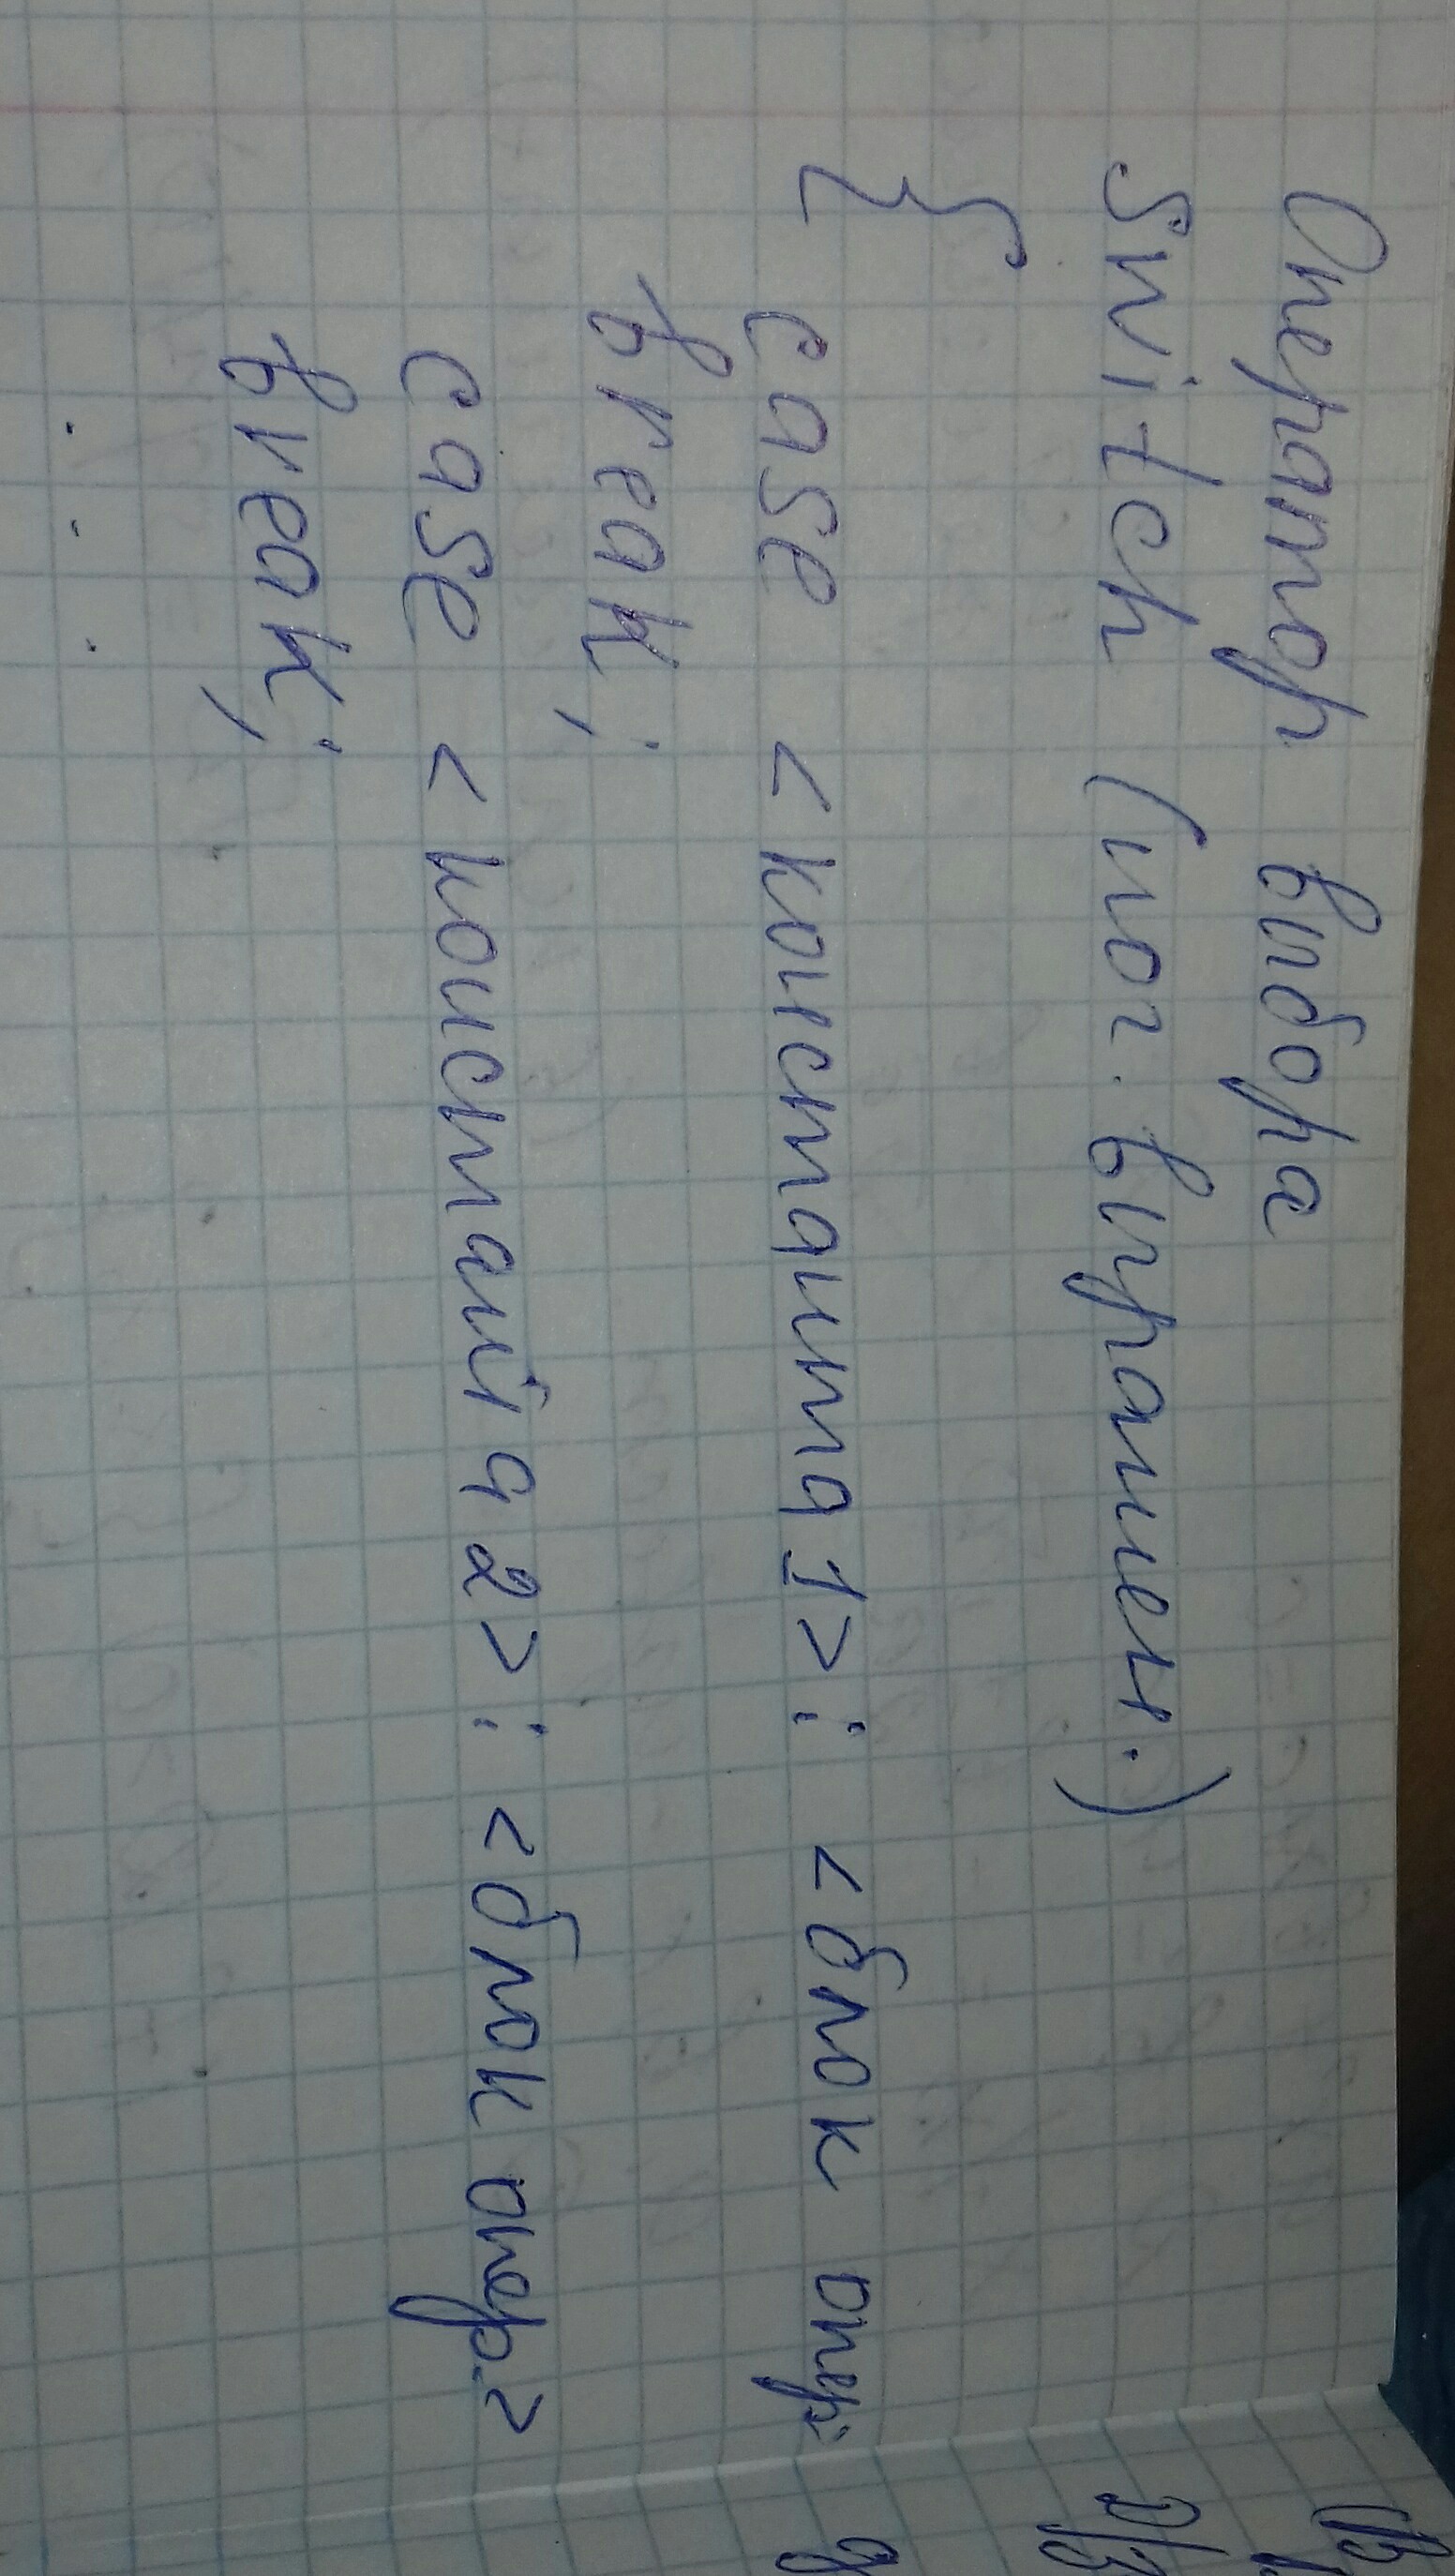 Оператор выбора
switch (лог. выражен.)
{
case <константа 1>: <блок опер.
break;
case <константа 2>: <блок опер.>
break;
. . .
Д/З